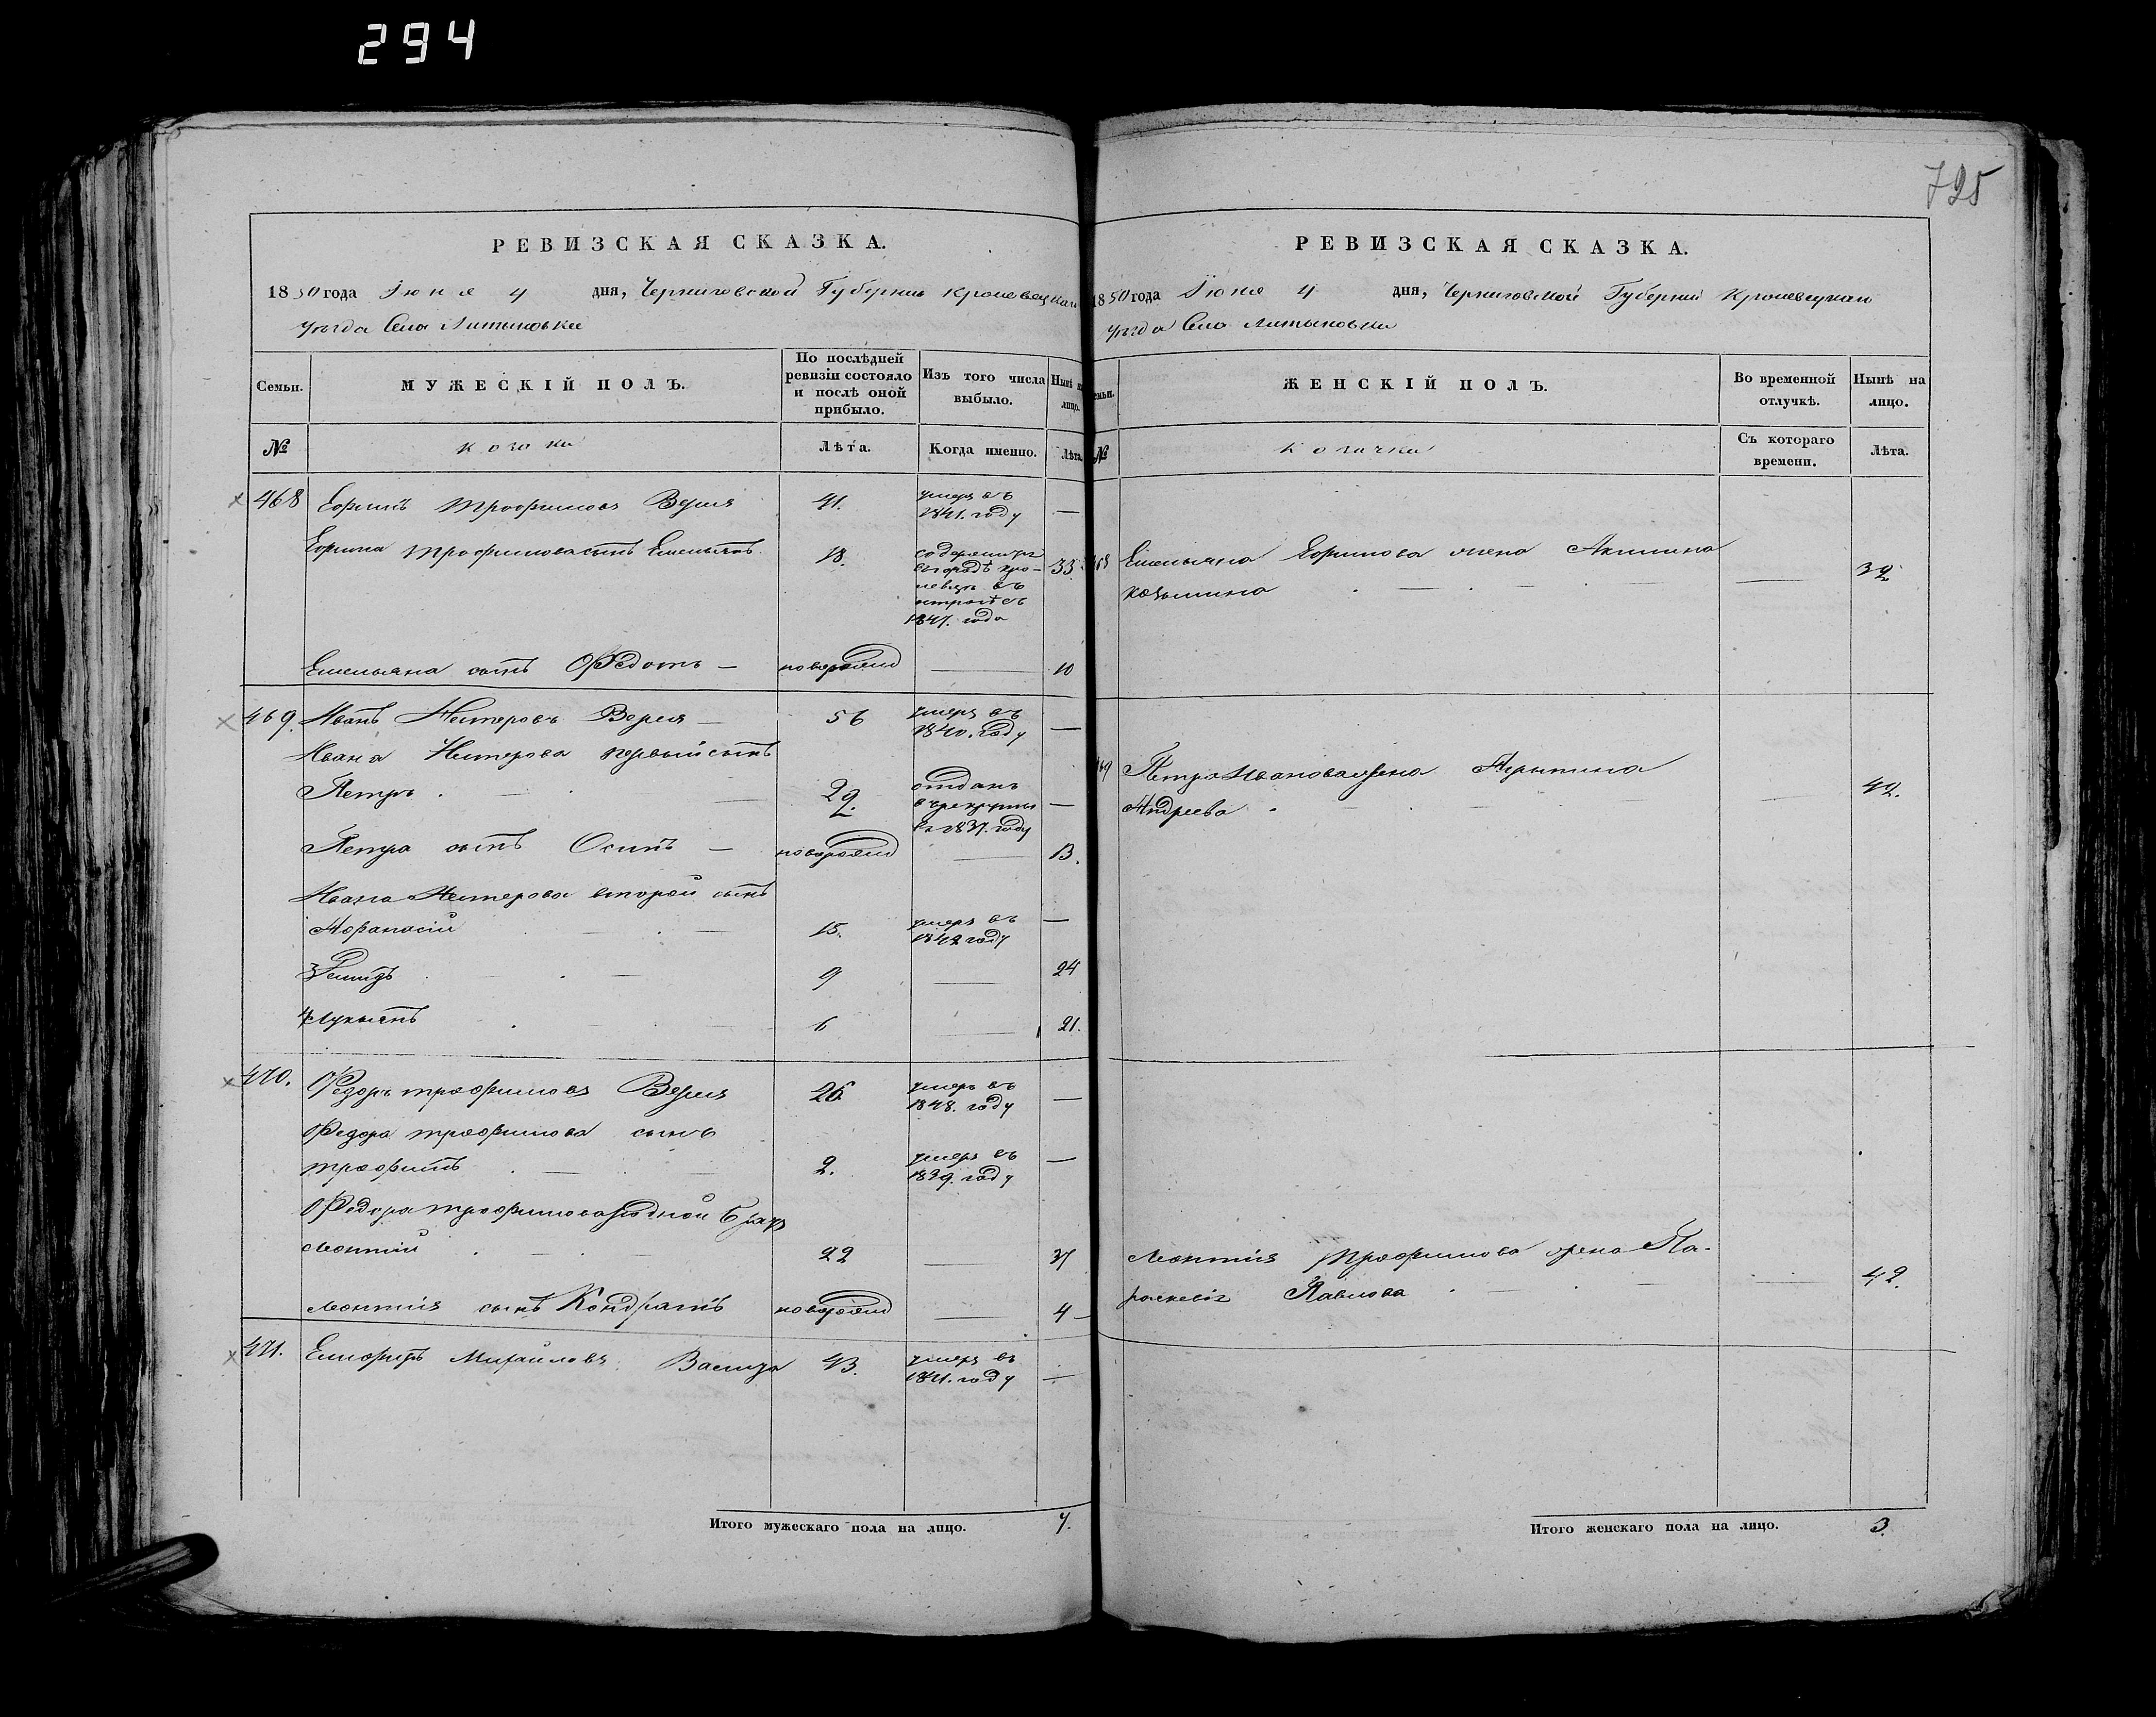 294
725
РЕВИЗСКАЯ СКАЗКА.
1850 года Июня 4 дня, Черниговской Губернии Кролевецкаго
уезда Села Литвиновки
Семьи. МУЖЕСКІЙ ПОЛЪ. По послѣдней ревизіи состояло и послѣ оной прибыло. Изъ того числа выбыло. Нынѣ на лицо.
№ козаки Лѣта. Когда именно. Лѣта.
468 Ефимъ Трофимовъ Верея 41. умеръ въ 1841. году —
Ефима Трофимова сынъ Емельянъ 18. содержится въ городѣ Кролевце въ остроге съ 1847. года 33
Емельяна сынъ Федотъ — новорожд 10
469. Иванъ Нестеровъ Верея — 56 умеръ въ 1840. году —
Ивана Нестерова первый сынъ
Петръ 29. отданъ в рекруты в 1837. году —
Петра сынъ Осипъ — новорожд 13.
Ивана Нестерова второй сынъ
Афанасій 15. умеръ въ 1842 году —
3 Демидъ 9 24
4 Лукьянъ 6 21.
470. Федоръ Трофимовъ Верея 26. умеръ въ 1848. году —
Федора Трофимова сынъ
Трофимъ 2. умеръ въ 1839. году —
Федора Трофимова родной братъ
Леонтій 22 37
Леонтія сынъ Кондратъ новорожд 4
471. Михайловъ 43. умеръ въ 1841. году —
Итого мужескаго пола на лицо. 7.
РЕВИЗСКАЯ СКАЗКА.
1850 года Июня 4 дня, Черниговской Губерніи Кролевецкаго
уезда Села Литвиновки
Семьи. ЖЕНСКІЙ ПОЛЪ. Во временной отлучкѣ. Нынѣ на лицо.
№ козачки Съ котораго времени. Лѣта.
468 Емельяна Ефимова жена Акилина
Козьмина — 32
469 Петра Иванова жена
Андреева 42.
Леонтія Трофимова жена Па-
раскевія Павлова 42.
Итого женскаго пола на лицо. 3.